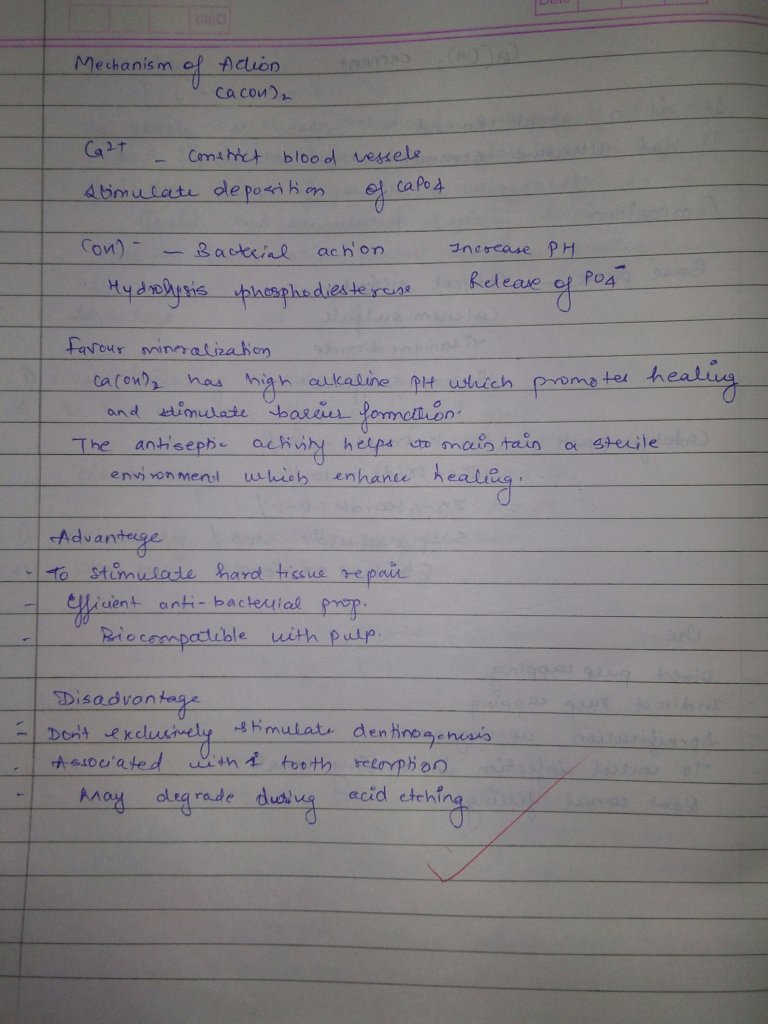 Mechanism of Action
Ca(OH)2
Ca2+ - Constrict blood vessels
Stimulate deposition of CaPO4
(OH)- - Bacterial action Increase PH
Hydrolysis phosphodiesterise Release of PO4-
Favour mineralization
Ca(OH)2 has high alkaline PH which promotes healing
and stimulate barrier formation.
The antiseptic activity helps to maintain a sterile
environment which enhance healing.
Advantage
- To stimulate hard tissue repair
- Efficient anti-bacterial prop.
- Biocompatible with pulp.
Disadvantage
= Don't exclusively stimulate dentinogenesis
- Associated with tooth resorption
- May degrade during acid etching